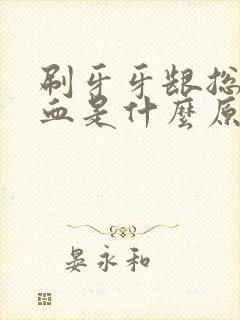 刷牙牙龈总
血是什麼原
晏永和